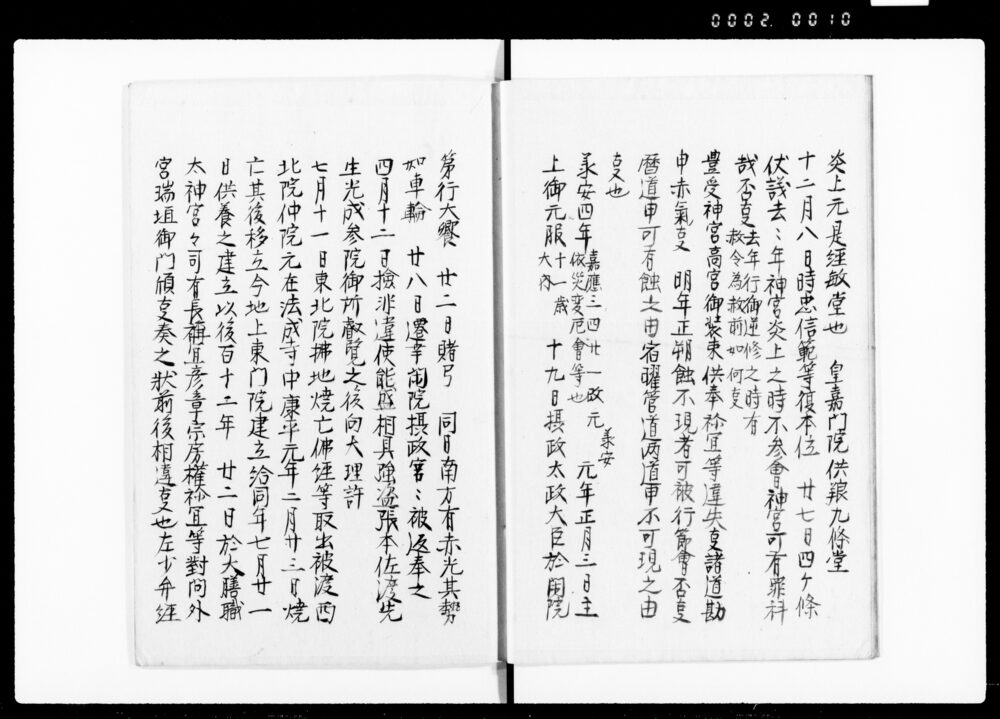 0002. 0010
炎上元是經敏堂也　皇嘉門院供粮九條堂
十二月八日時忠信範等復本位　廿七日四ケ條
伏議去〻年神宮炎上之時不参會神宮可有罪科
哉否叓去年行御逆修之時有
赦令為赦前如何叓
豊受神宮高宮御装束供奉祢宜等違失叓諸道勘
申赤氣叓　明年正朔蝕不現者可被行節會否叓
暦道申可有蝕之由宿曜管道两道申不可現之由
叓也
羕安四年嘉應三四廿一改元羕安
依災変厄會等也
元年正月三日主
上御元服十一歳
大内
十九日摂政太政大臣於閑院
第行大饗　廿二日賭弓　同日南方有赤光其勢
如車輪　廿八日遷幸閑院摂政害〻被返奉之
四月十二日撿非違使能盛相具強盗張本佐渡先
生光成参院御所叡覽之後向大理許
七月十一日東北院拂地燒亡佛経等取出被渡西
北院件院元在法成寺中康平元年二月廿三日燒
亡其後移立今地上東門院建立給同年七月廿一
日供養之建立以後百十二年　廿二日於大膳職
太神宮〻司有長祢宜彦章宗房權祢宜等對问外
宮瑞垣御門頎叓奏之状前後相違叓也左少弁経